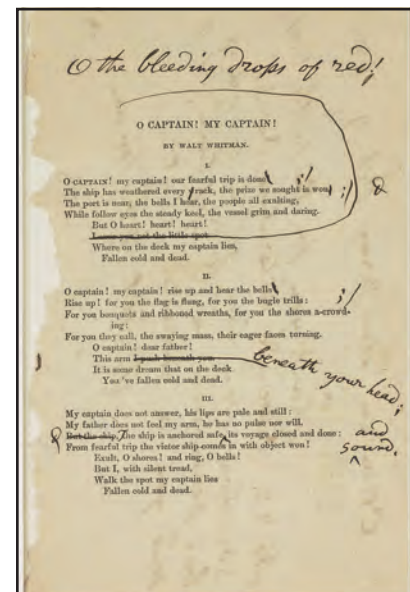 O the bleeding drops of red!
O CAPTAIN! MY CAPTAIN!
BY WALT WHITMAN.
I.
O CAPTAIN! my captain! our fearful trip is done
The ship has weathered every rack, the prize we sought is won
The port is near, the bells I hear, the people all exulting,
While follow eyes the steady keel, the vessel grim and daring.
But O heart! heart! heart!
Leave you not the little spot
Where on the deck my captain lies,
Fallen cold and dead.
II.
O captain! my captain! rise up and hear the bells
Rise up! for you the flag is flung, for you the bugle trills:
For you bouquets and ribboned wreaths, for you the shores a-crowd-
ing:
For you they call, the swaying mass, their eager faces turning.
O captain! dear father!
This arm I push beneath you
beneath your head;
It is some dream that on the deck
You've fallen cold and dead.
III.
My captain does not answer, his lips are pale and still:
My father does not feel my arm, he has no pulse nor will.
But the ship, The ship is anchored safe, its voyage closed and done: and
From fearful trip the victor ship comes in with object won! sound,
Exult, O shores! and ring, O bells!
But I, with silent tread,
Walk the spot my captain lies
Fallen cold and dead.